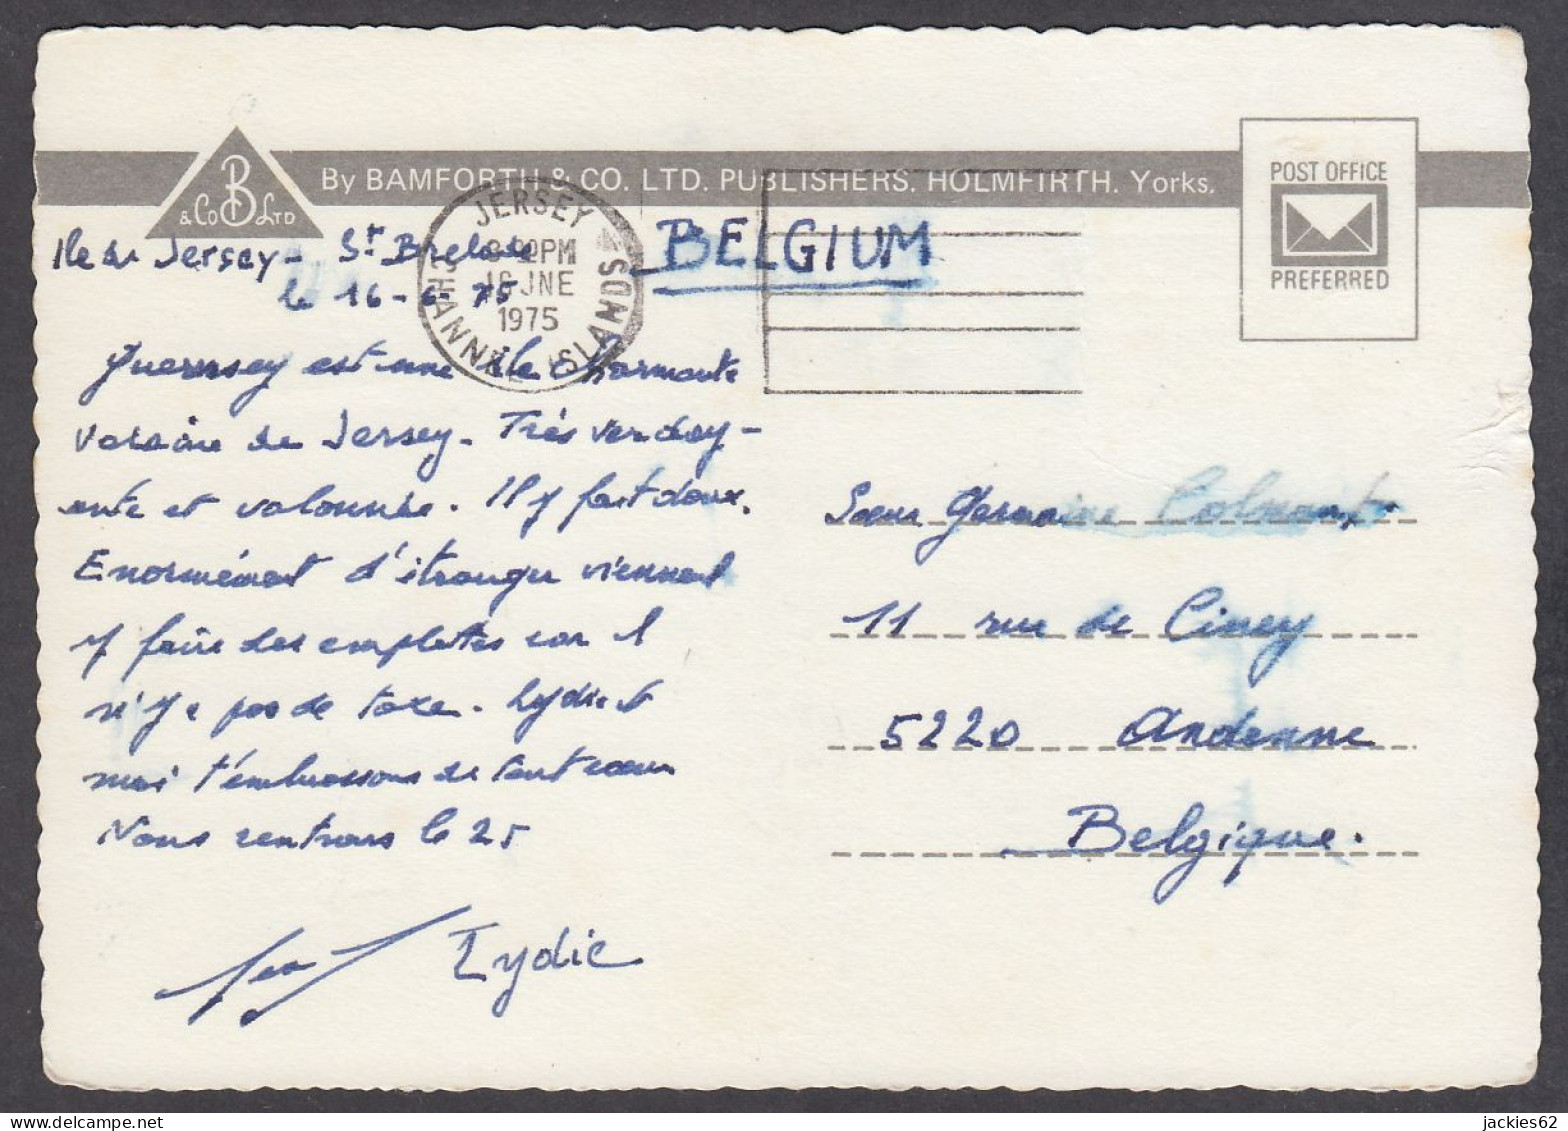 B
& Co LTD
By BAMFORTH & CO. LTD. PUBLISHERS. HOLMFIRTH. Yorks.
POST OFFICE
PREFERRED
JERSEY
PM
16 JNE
1975
CHANNEL ISLANDS
BELGIUM
Ile de Jersey - St Brelade
le 16-6-75
Guernsey est une île charmante
voisine de Jersey. Très verdoy-
ante et valonnée. Il y fait doux.
Enormément d'étranger viennent
y faire des emplettes car il
n'y a pas de taxe. Lydie et
moi t'embrassons de tout cœur
Nous rentrons le 25
Lydie
Soeur Germaine
11 rue de Ciney
5220 Andenne
Belgique.
jackies62